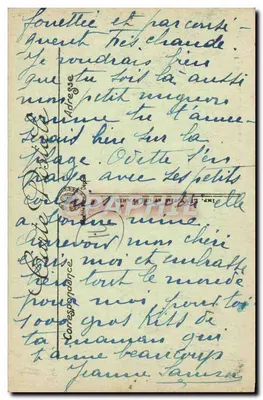 fouettée et par consé-
quent très chaude.
Je voudrais bien
que tu sois là aussi
mon petit mignon
comme tu t'amuse-
rais bien sur la
plage. Odette s'en
avec ses petits
elle
a bonne mine
Au revoir mon chéri
moi et embrasse
tout le monde
pour moi, pour toi
1000 gros Kiss de
ta maman qui
t'aime beaucoup
Jeanne
Carte Postale
Correspondance
Adresse